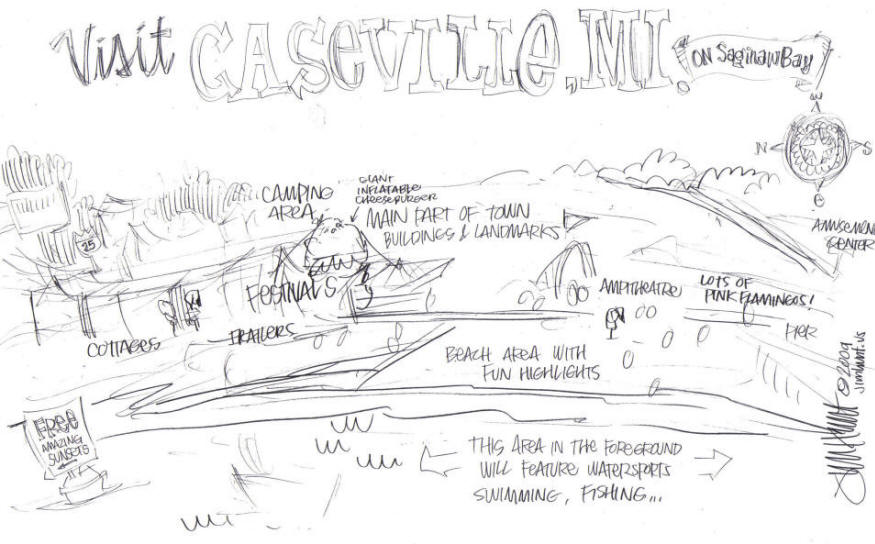 Visit CASEVILLE, MI.
ON Saginaw Bay
N
S
CAMPING
AREA
GIANT
INFLATABLE
CHEESEBURGER
MAIN PART OF TOWN
BUILDINGS & LANDMARKS!
25
AMUSEMENT
CENTER
FESTIVALS
AMPITHEATRE
LOTS OF
PINK FLAMINGOS!
COTTAGES
TRAILERS
PIER
BEACH AREA WITH
FUN HIGHLIGHTS
© 2009
jimhunt.us
Jim Hunt
FREE
AMAZING
SUNSETS
THIS AREA IN THE FOREGROUND
WILL FEATURE WATERSPORTS
SWIMMING, FISHING...